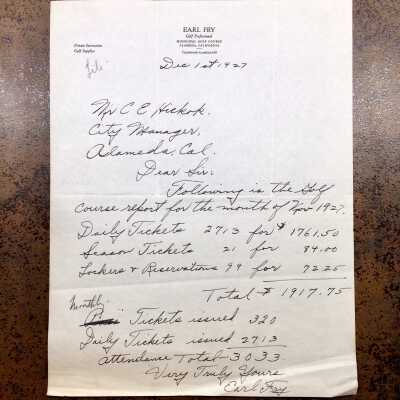 EARL FRY
Golf Professional
MUNICIPAL GOLF COURSE
ALAMEDA, CALIFORNIA
Private Instruction
Golf Supplies
File
Dec 1st 1927
Mr C E Hickok.
City Manager,
Alameda, Cal.
Dear Sir:
Following is the Golf
course report for the month of Nov 1927.
Daily Tickets 2713 for $ 1761.50
Season Tickets 21 for 84.00
Lockers & Reservations 99 for 72.25
Total $ 1917.75
Monthly
Tickets issued 320
Daily Tickets issued 2713
Attendance Total 3033.
Very Truly Yours
Earl Fry